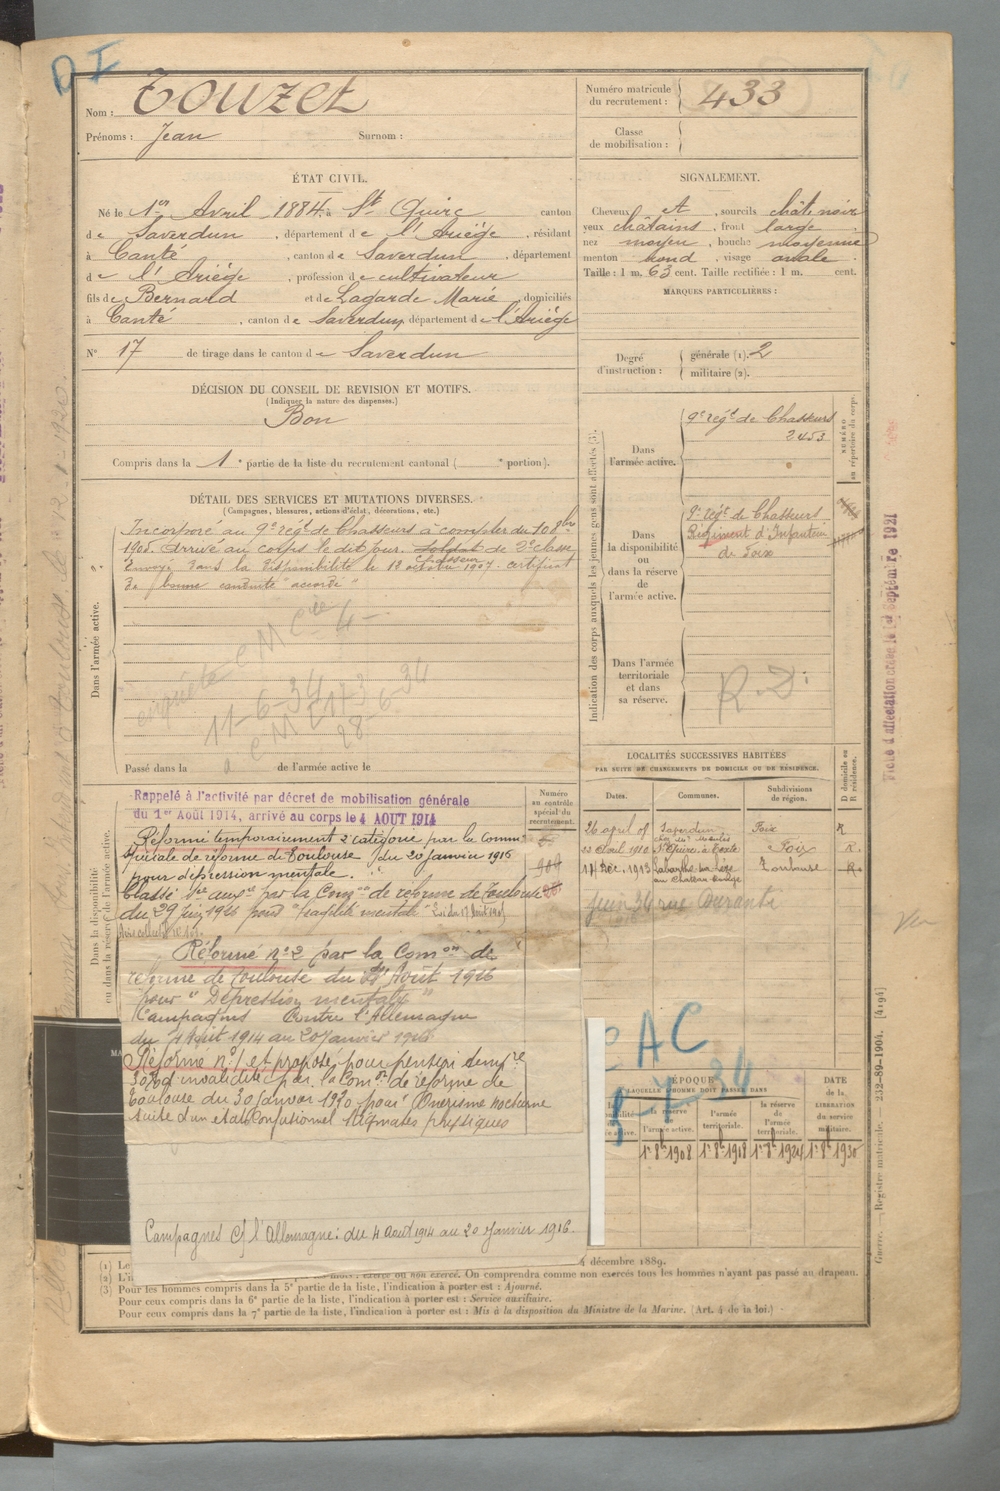 D I
Nom : Touzet
Prénoms : Jean Surnom :
Numéro matricule
du recrutement : 433
Classe
de mobilisation :
ÉTAT CIVIL.
Né le 1er Avril 1884 à St Quirc canton
de Saverdun, département de l'Ariège, résidant
à Canté, canton de Saverdun, département
de l'Ariège, profession de cultivateur
fils de Bernard et de Lagarde Marie, domiciliés
à Canté, canton de Saverdun, département de l'Ariège
N° 17 de tirage dans le canton de Saverdun
SIGNALEMENT.
Cheveux ct, sourcils chât. noirs
yeux châtains, front large
nez moyen, bouche moyenne
menton rond, visage ovale.
Taille : 1 m. 63 cent. Taille rectifiée : 1 m. cent.
MARQUES PARTICULIÈRES :
Degré
d'instruction :
générale (1). 2
militaire (2).
DÉCISION DU CONSEIL DE REVISION ET MOTIFS.
(Indiquer la nature des dispenses.)
Bon
Compris dans la 1e partie de la liste du recrutement cantonal ( e portion).
DÉTAIL DES SERVICES ET MUTATIONS DIVERSES.
(Campagnes, blessures, actions d'éclat, décorations, etc.)
Incorporé au 9e régt de Chasseurs à compter du 10 8bre
1905. Arrivé au corps le dit jour. Soldat de 2e classe
Chasseur
Envoyé dans la disponibilité le 12 octobre 1907. certificat
de bonne conduite "accordé"
Dans l'armée active.
enquête C M Cie 4
11-6-34
28-6-34
Passé dans la de l'armée active le
Indication des corps auxquels les jeunes gens sont affectés (3).
NUMÉRO
au répertoire du corps.
Dans
l'armée active.
9e régt de Chasseurs
2453
Dans
la disponibilité
ou
dans la réserve
de
l'armée active.
9e régt de Chasseurs
Régiment d'Infanterie
de Foix
Dans l'armée
territoriale
et dans
sa réserve.
R. D.
LOCALITÉS SUCCESSIVES HABITÉES
PAR SUITE DE CHANGEMENTS DE DOMICILE OU DE RÉSIDENCE.
D domicile ou
R résidence.
Dates. Communes. Subdivisions
de région.
Saverdun Foix R
22 Avril 1910 Foix R.
17 Déc. 1913 Labarthe sur Lèze Toulouse R
juin 34 rue Duranti
Dans la disponibilité
ou dans la réserve de l'armée active.
Numéro
au contrôle
spécial du
recrutement.
Rappelé à l'activité par décret de mobilisation générale
du 1er Août 1914, arrivé au corps le 4 AOUT 1914
Réformé temporairement 2e catégorie par la Comon
spéciale de réforme de Toulouse du 20 Janvier 1916
pour dépression mentale.
Classé par la Comon de réforme de Toulouse
du 29 juin 1916 pour "fragilité mentale"
Réformé n°2 par la Comon de
réforme de Toulouse du Août 1916
pour "Dépression mentale"
Campagnes Contre l'Allemagne
du 4 Août 1914 au 20 Janvier 1916
Réformé n°1 et proposé pour pension tempre
30% d'invalidité par la Comon de réforme de
Toulouse du 30 Janvier 1920 pour Onirisme nocturne
suite d'un état confusionnel stigmates physiques
Campagnes c/ l'Allemagne : du 4 Août 1914 au 20 Janvier 1916.
AC
7-34
ÉPOQUE
À LAQUELLE L'HOMME DOIT PASSER DANS
DATE
de la
LIBÉRATION
du service
militaire.
réserve
de
l'armée active.
l'armée
territoriale.
la réserve
de
l'armée
territoriale.
1er 8b 1908 1er 8b 1918 1er 8b 1924 1er 8b 1930
décembre 1889.
exercé ou non exercé. On comprendra comme non exercés tous les hommes n'ayant pas passé au drapeau.
(3) Pour les hommes compris dans la 5e partie de la liste, l'indication à porter est : Ajourné.
Pour ceux compris dans la 6e partie de la liste, l'indication à porter est : Service auxiliaire.
Pour ceux compris dans la 7e partie de la liste, l'indication à porter est : Mis à la disposition du Ministre de la Marine. (Art. 4 de la loi.)
Guerre. — Registre matricule. — 232-89-1904. [4194]
Fiche d'affectation créée le 1er Septembre 1921
Vu